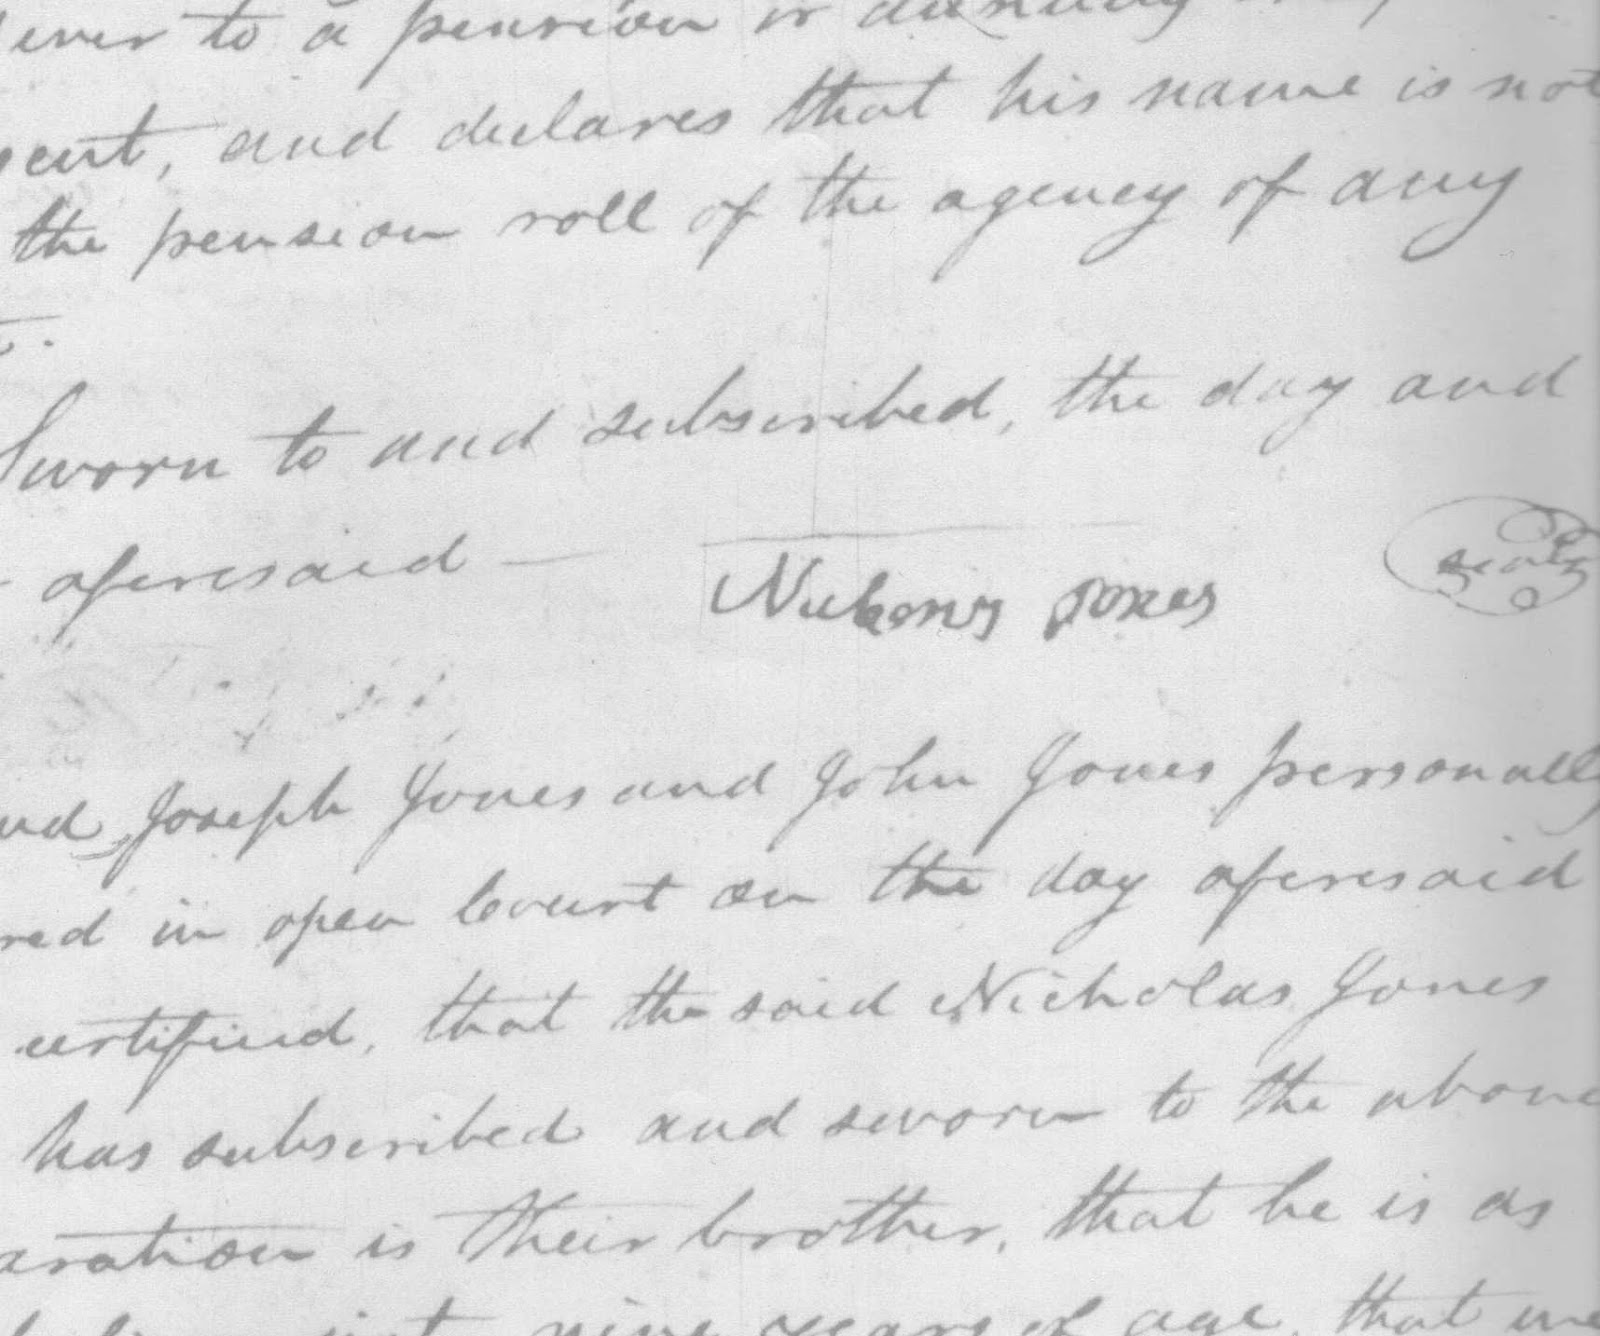 ever to a pension or annuity
sent, and declares that his name is not
the pension roll of the agency of any
Sworn to and subscribed, the day and
aforesaid —
Nichons Jones
seal
Joseph Jones and John Jones personally
red in open Court on the day aforesaid
certified, that the said Nicholas Jones
has subscribed and sworn to the above
aration is their brother, that he is as
nine years of age, that